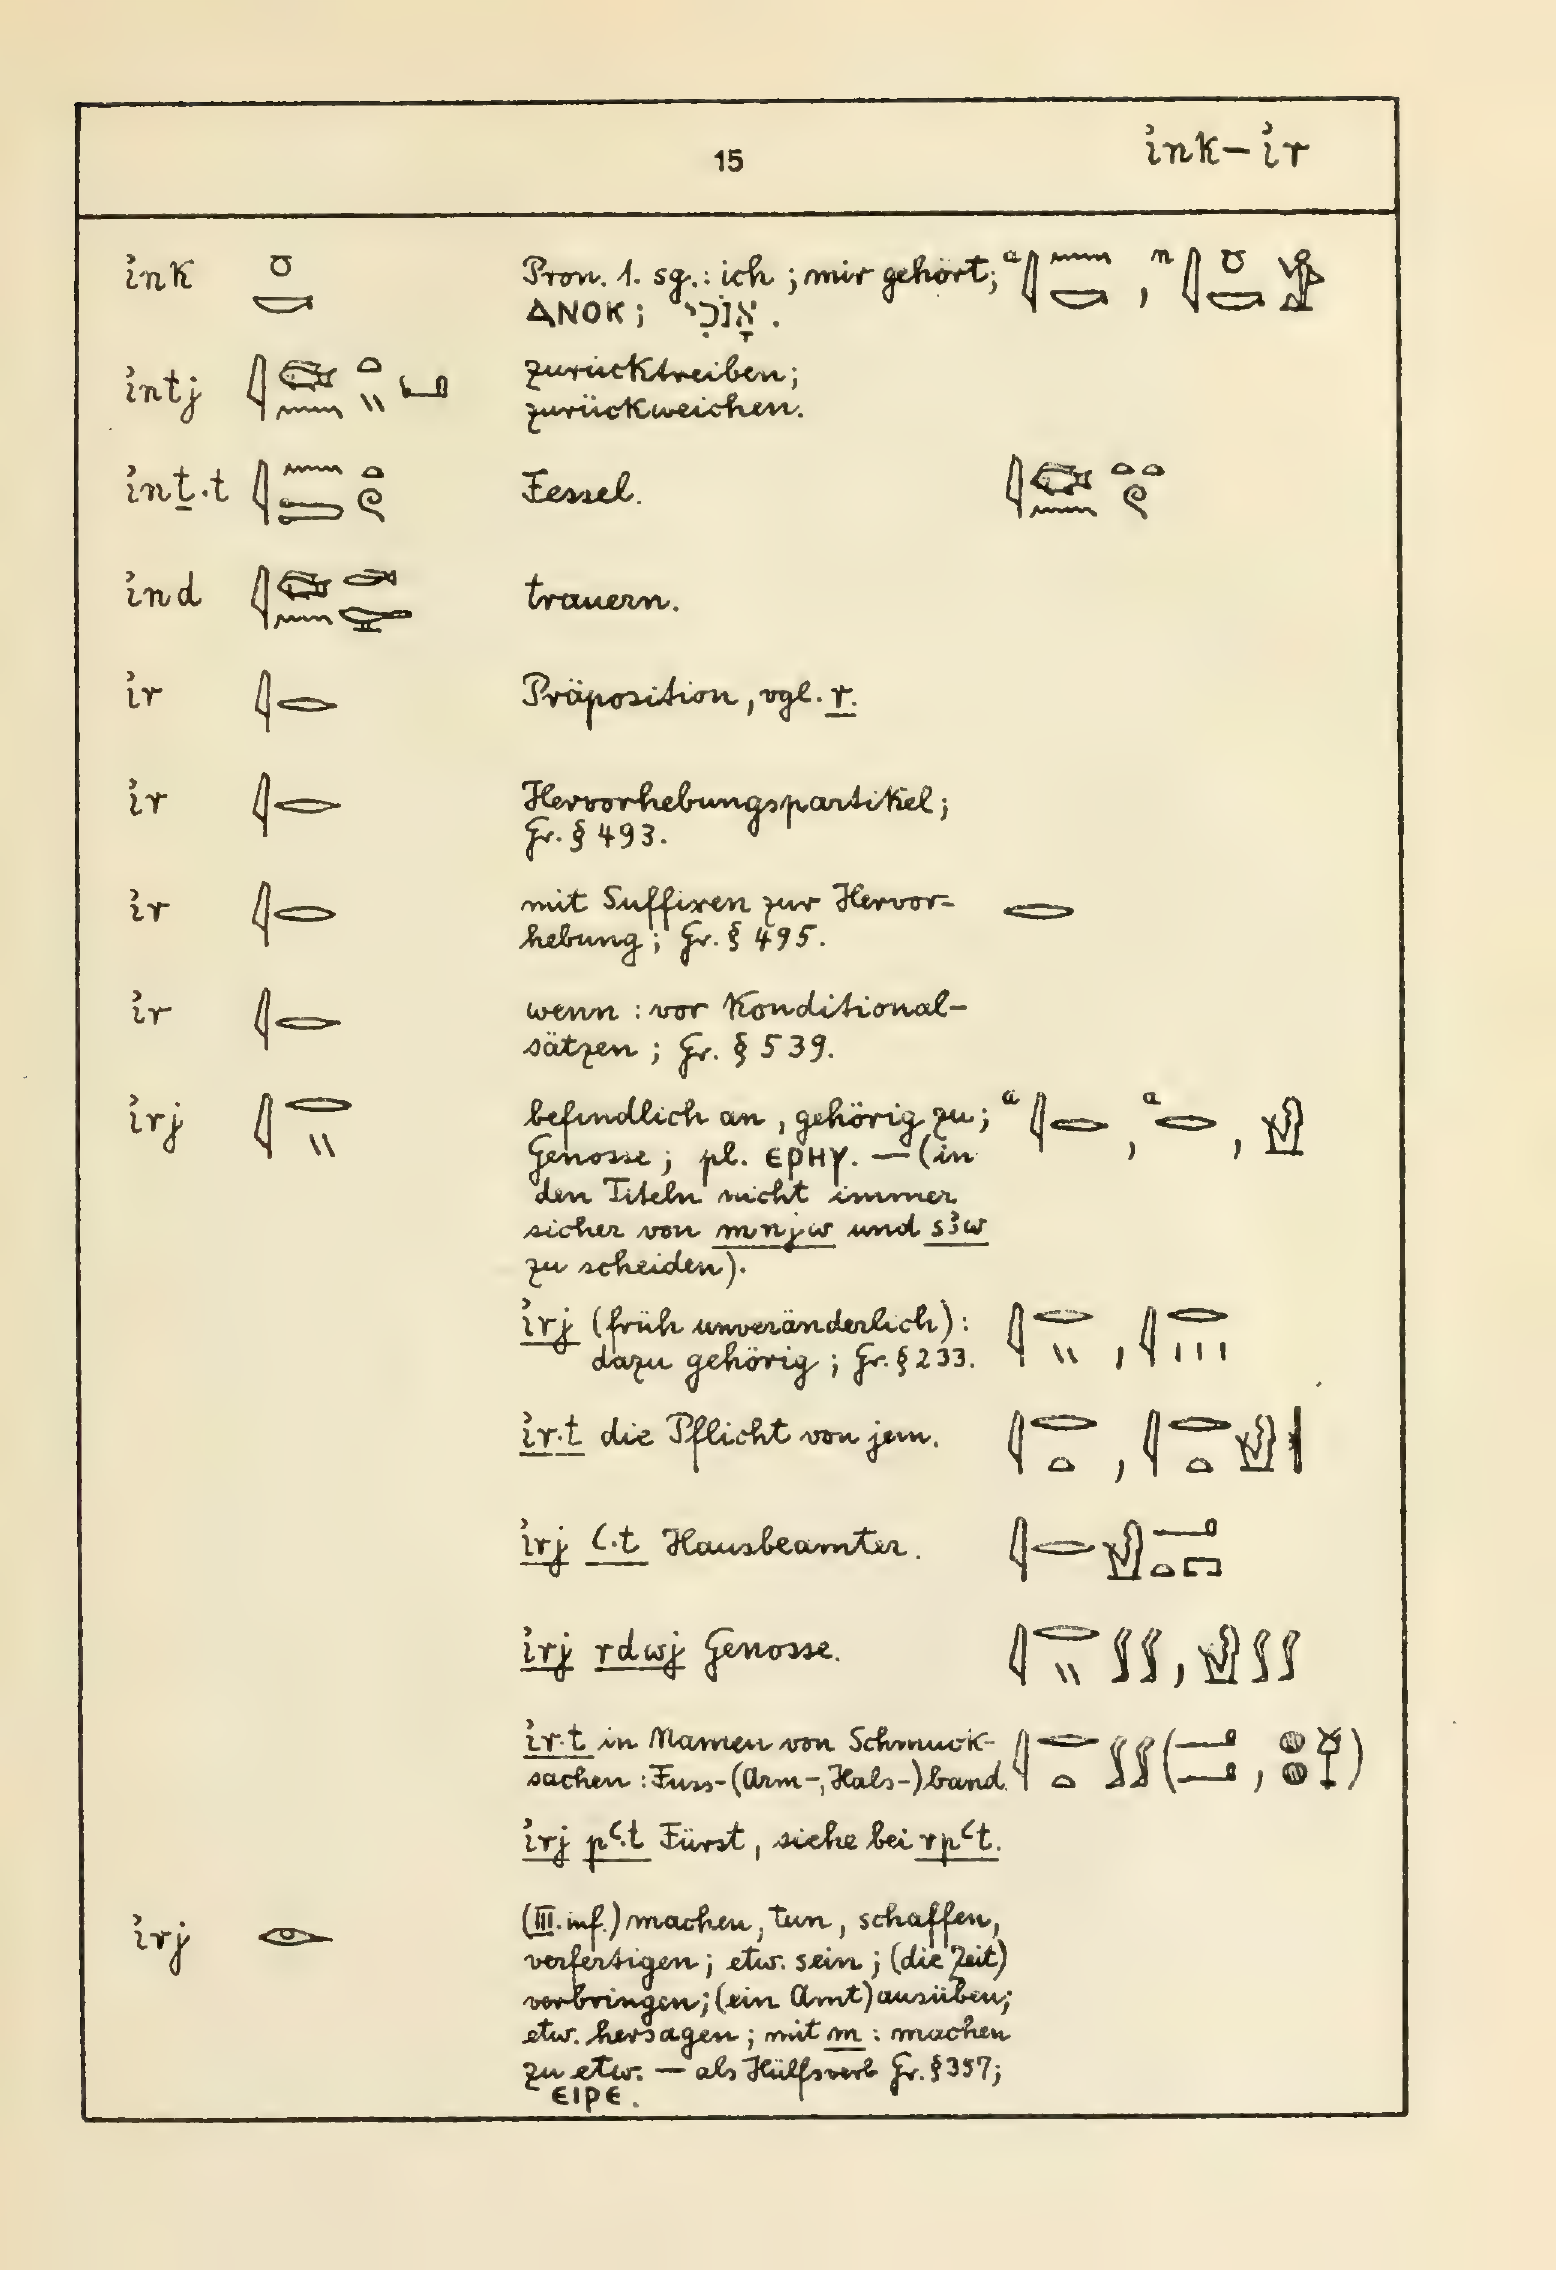 15 ỉnk – ỉr
ỉnk 𓏌𓎡 Pron. 1. sg.: ich ; mir gehört; ᵃ𓇋𓈖𓎡 , ⁿ𓇋𓏌𓎡𓀀
ⲀⲚⲞⲔ ; אָנֹכִי .
ỉntj 𓇋𓆛𓈖𓏏𓏭𓂡 zurücktreiben;
zurückweichen.
ỉnṯ·t 𓇋𓈖𓍿𓏏𓏲 Fessel. 𓇋𓆛𓈖𓏏𓏏𓏲
ỉnd 𓇋𓆛𓈖𓅪 trauern.
ỉr 𓇋𓂋 Präposition, vgl. r.
ỉr 𓇋𓂋 Hervorhebungspartikel;
Gr. § 493.
ỉr 𓇋𓂋 mit Suffixen zur Hervor= 𓂋
hebung ; Gr. § 495.
ỉr 𓇋𓂋 wenn : vor Konditional-
sätzen ; Gr. § 539.
ỉrj 𓇋𓂋𓏭 befindlich an , gehörig zu; ᵃ𓇋𓂋 , ᵃ𓂋 , 𓀹
Genosse ; pl. ⲈⲢⲎⲨ. — (in
den Titeln nicht immer
sicher von mnjw und sꜣw
zu scheiden).
ỉrj (früh unveränderlich) : 𓇋𓂋𓏭 , 𓇋𓂋𓏥
dazu gehörig ; Gr. § 233.
ỉr·t die Pflicht von jem. 𓇋𓂋𓏏 , 𓇋𓂋𓏏𓀹𓏛
ỉrj ꜥ·t Hausbeamter. 𓇋𓂋𓀹𓂝𓏏𓉐
ỉrj rdwj Genosse. 𓇋𓂋𓏭𓂾𓂾 , 𓀹𓂾𓂾
ỉr·t in Namen von Schmuck- 𓇋𓂋𓏏𓂾𓂾(𓂝𓂝 , 𓐍𓐍𓄤)
sachen : Fuss-(Arm-, Hals-)band.
ỉrj pꜥ·t Fürst, siehe bei rpꜥt.
ỉrj 𓁹 (III. inf.) machen, tun, schaffen,
verfertigen; etw. sein ; (die Zeit)
verbringen; (ein Amt) ausüben;
etw. hersagen ; mit m : machen
zu etw. — als Hülfsverb Gr. § 357;
ⲈⲒⲢⲈ .